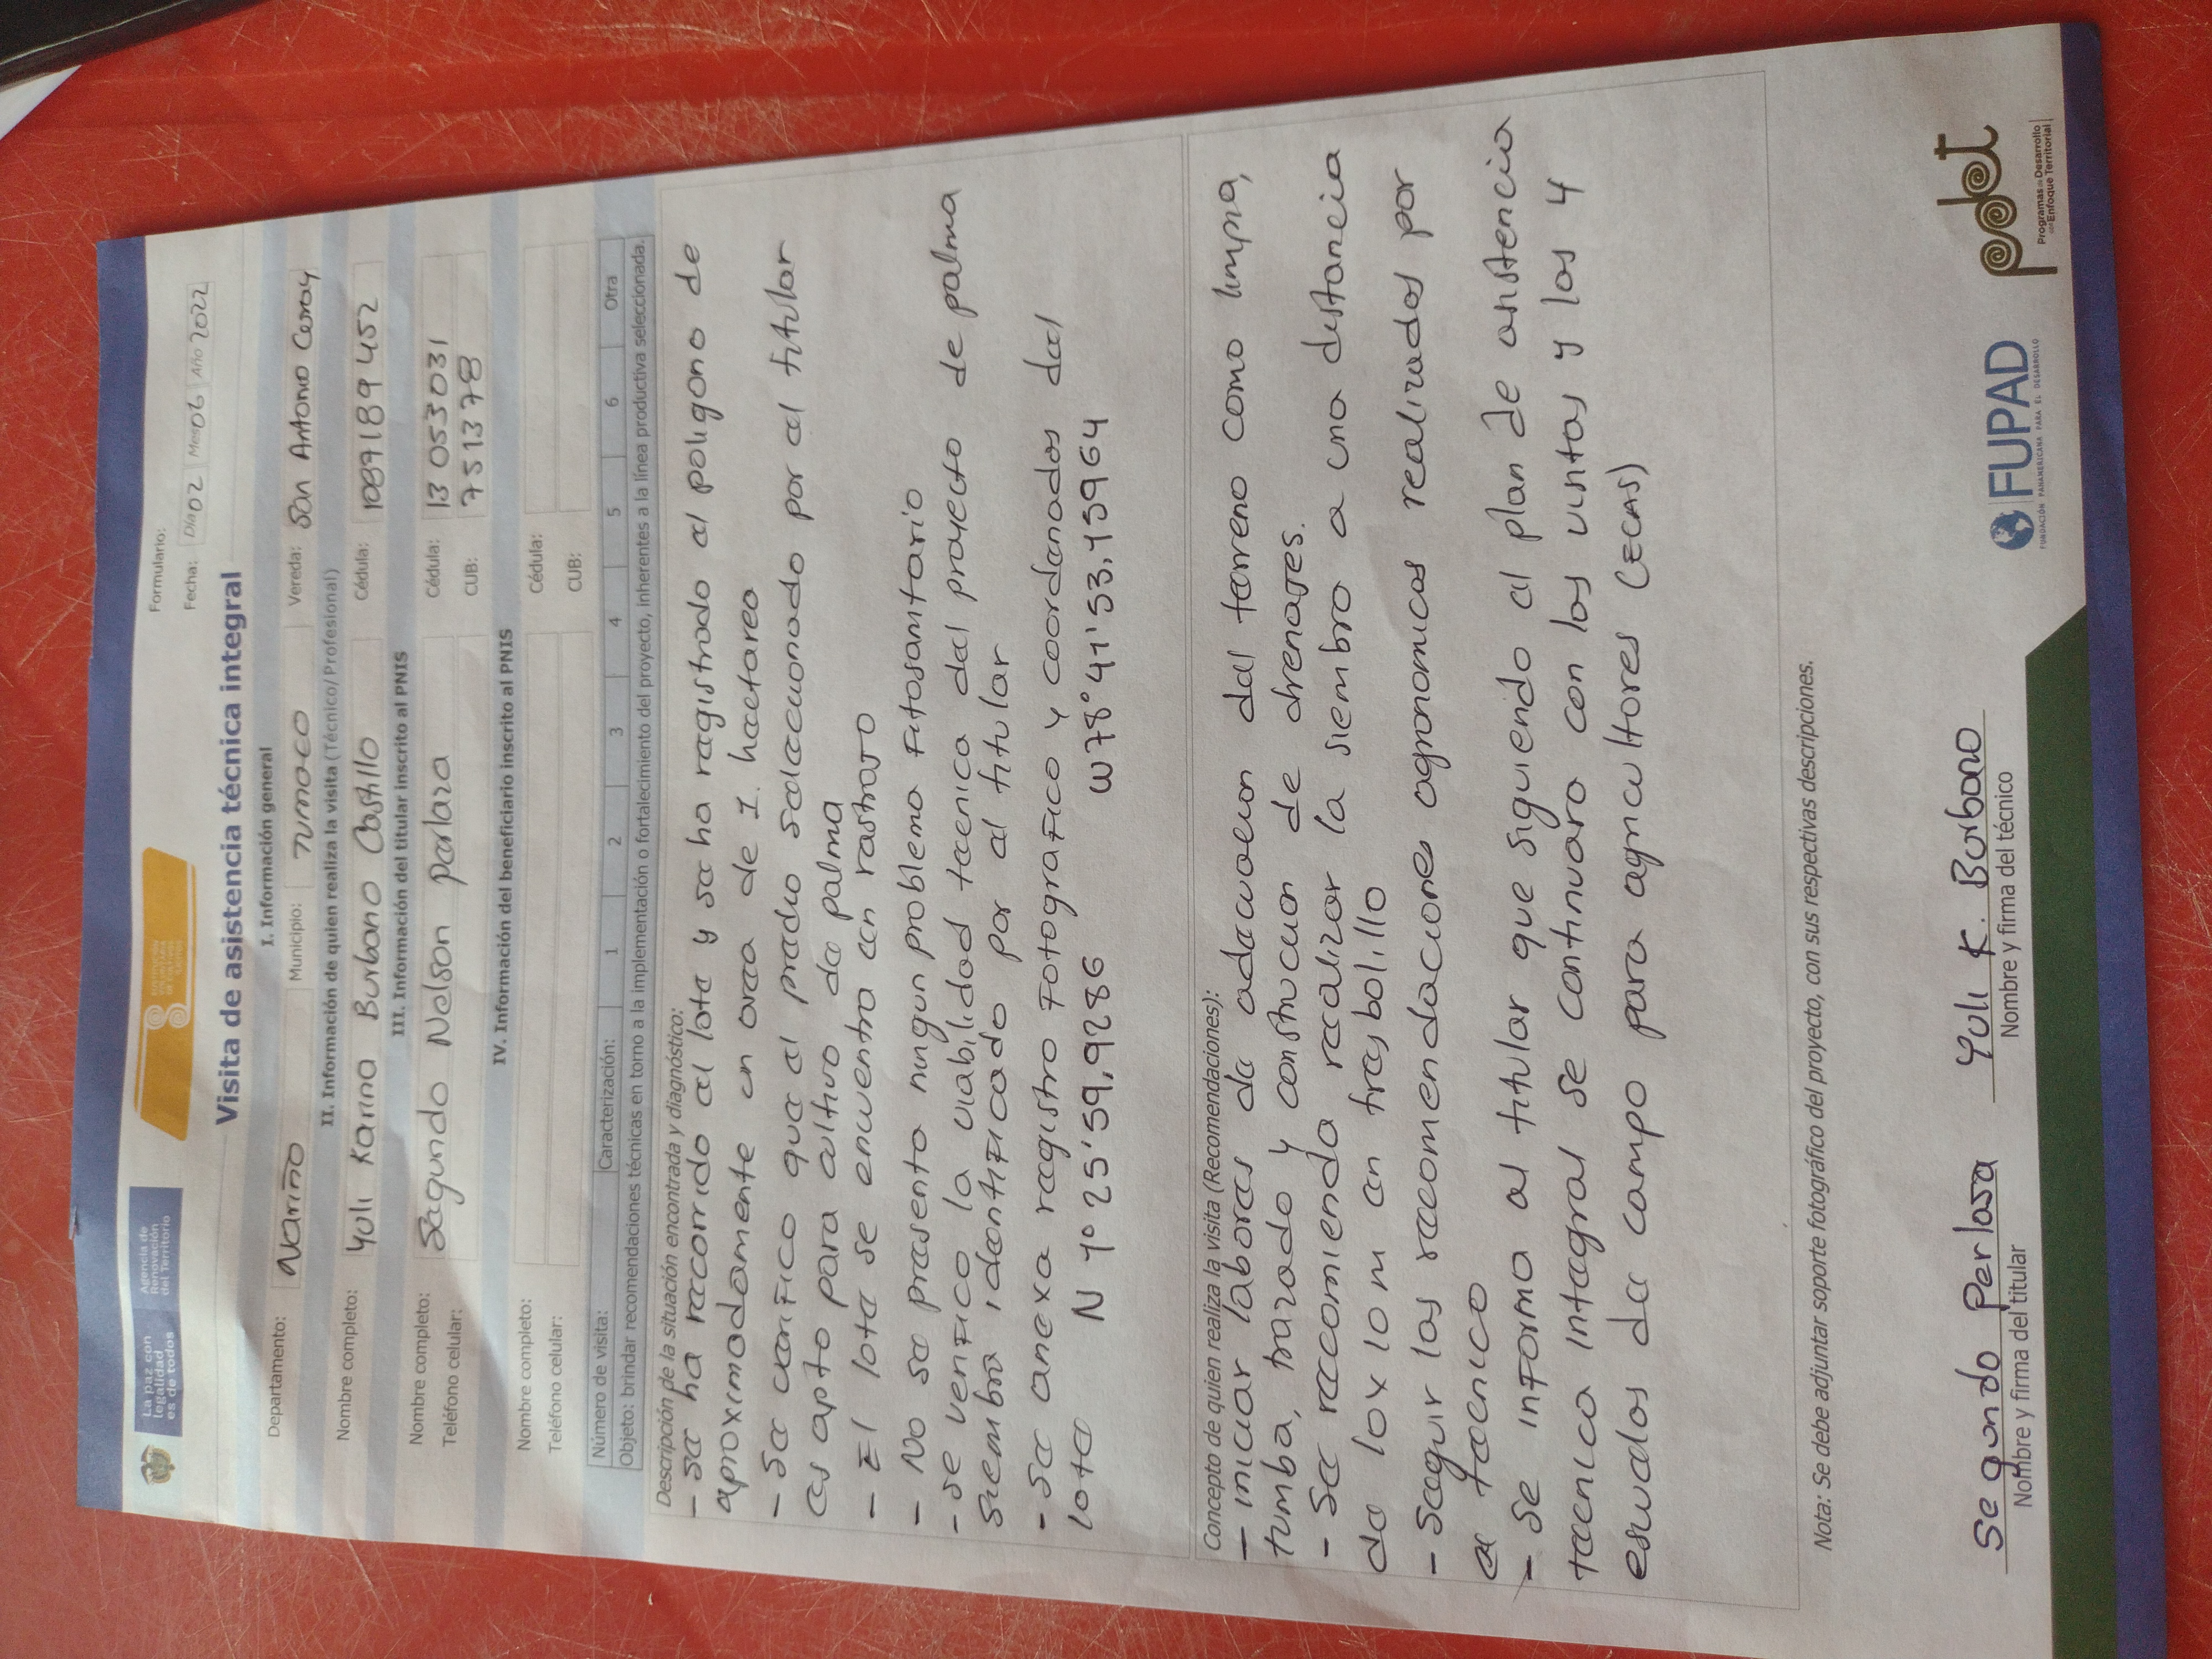 La paz con legalidad es de todos
Agencia de Renovación del Territorio
Formulario:
Fecha: Día 02 Mes 06 Año 2022
Visita de asistencia técnica integral
I. Información general
Departamento: Nariño Municipio: Tumaco Vereda: San Antonio Curay
II. Información de quien realiza la visita (Técnico/Profesional)
Nombre completo: Yuli Karina Burbano Castillo Cédula: 1089189452
III. Información del titular inscrito al PNIS
Nombre completo: Segundo Nelson Perlaza Cédula: 13053031
Teléfono celular: CUB: 751378
IV. Información del beneficiario inscrito al PNIS
Nombre completo: Cédula:
Teléfono celular: CUB:
Número de visita: Caracterización: 1 2 3 4 5 6 Otra
Objeto: brindar recomendaciones técnicas en torno a la implementación o fortalecimiento del proyecto, inherentes a la línea productiva seleccionada.
Descripción de la situación encontrada y diagnóstico:
- se ha recorrido el lote y se ha registrado el poligono de
aproximadamente en area de 1. hectarea
- Se verifico que el predio seleccionado por el titular
es apto para cultivo de palma
- El lote se encuentra en rastrojo
- No se presenta ningun problema Fitosanitario
- se verifico la viabilidad tecnica del proyecto de palma
siembra identificado por el titular
- Se anexa registro fotografico y coordenadas del
lote N 1° 25' 59,9286 W 78° 41' 53,45964
Concepto de quien realiza la visita (Recomendaciones):
- iniciar labores de adecuacion del terreno como limpia,
tumba, trazado y construccion de drenajes.
- Se recomienda realizar la siembra a una distancia
de 10x10m en tresbolillo
- Seguir las recomendaciones agronomicas realizadas por
el tecnico
- Se informa al titular que siguiendo el plan de asistencia
tecnica integral se continuara con las visitas y las 4
escuelas de campo para agricultores (ECAS)
Nota: Se debe adjuntar soporte fotográfico del proyecto, con sus respectivas descripciones.
Segundo Perlasa
Nombre y firma del titular
Yuli K. Burbano
Nombre y firma del técnico
FUPAD
FUNDACIÓN PANAMERICANA PARA EL DESARROLLO
pdet
Programas de Desarrollo con Enfoque Territorial